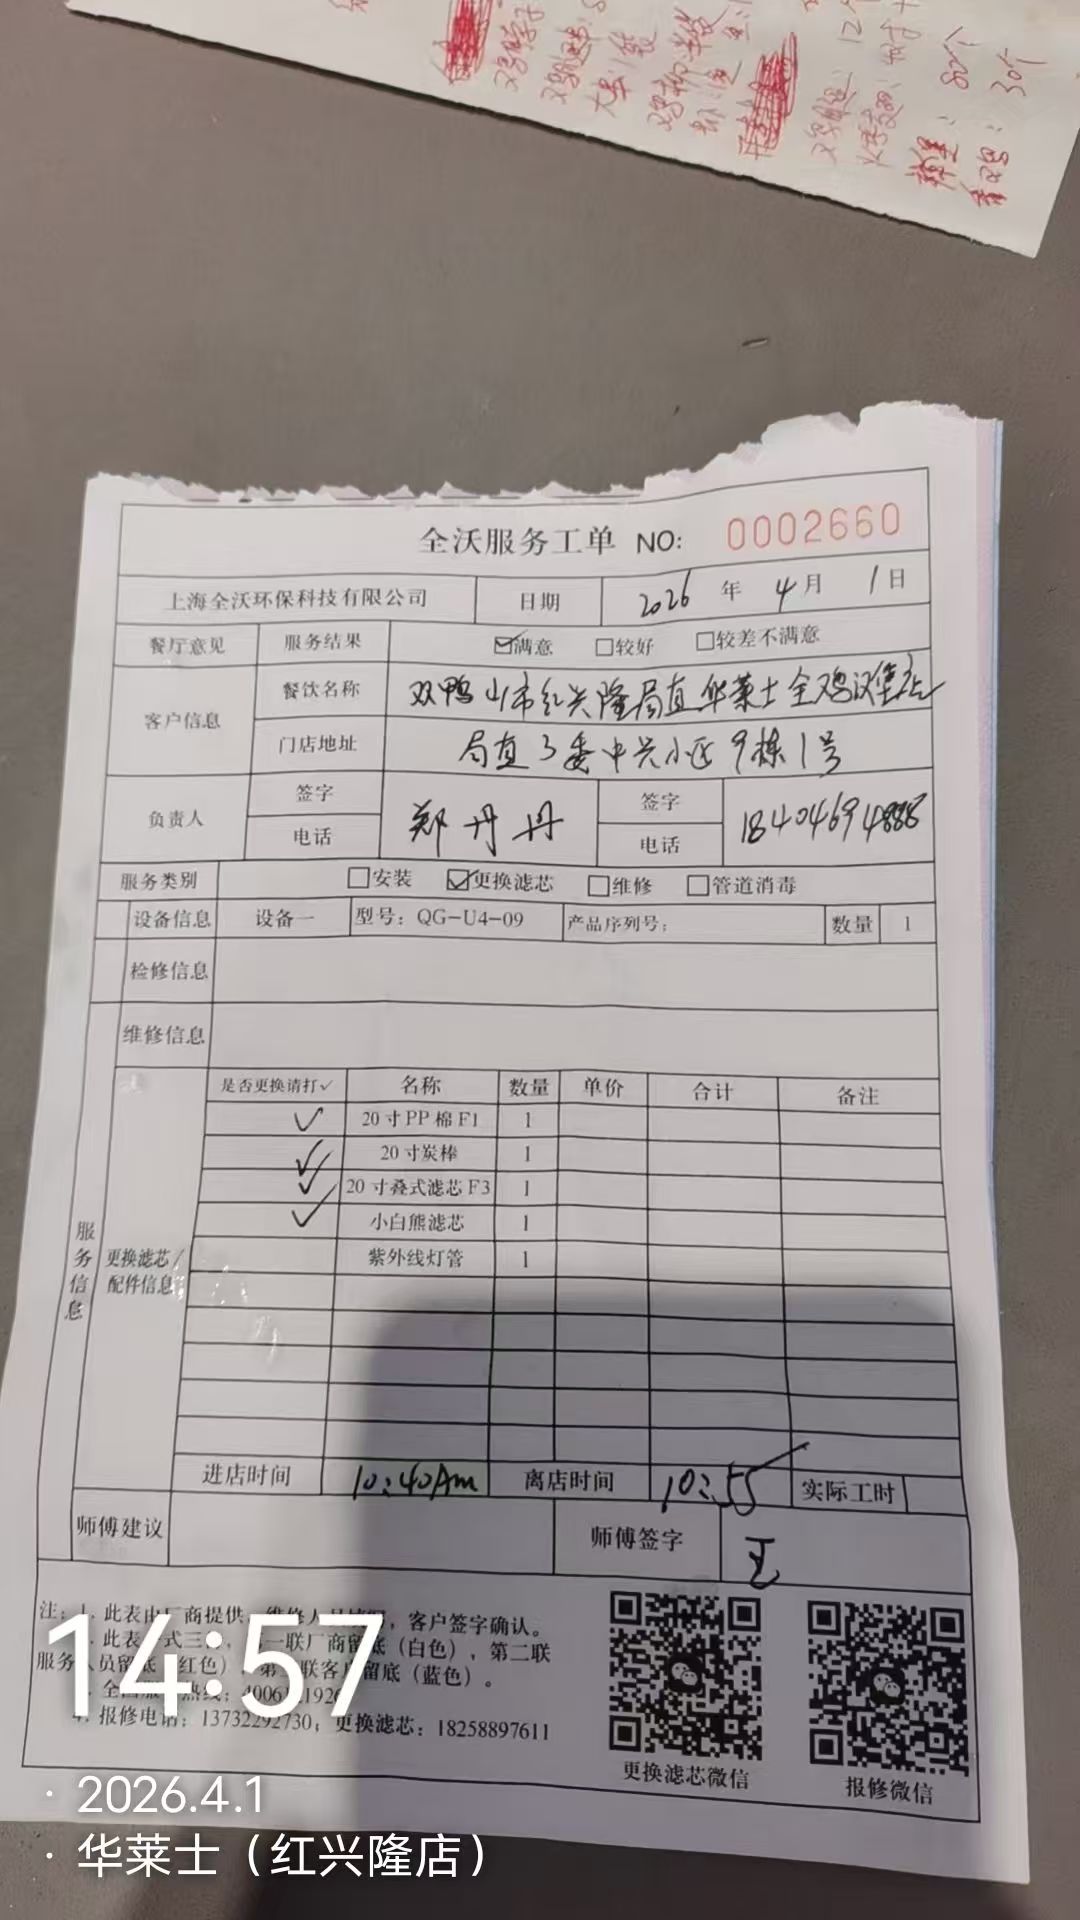 全沃服务工单 NO: 0002660
上海全沃环保科技有限公司 日期 2026 年 4 月 1 日
餐厅意见 服务结果 ☑满意 □较好 □较差不满意
客户信息 餐饮名称 双鸭山市红兴隆局直华莱士全鸡汉堡店
门店地址 局直3委中兴小区9栋1号
负责人 签字 电话 郑丹丹 签字 电话 18404694888
服务类别 □安装 ☑更换滤芯 □维修 □管道消毒
设备信息 设备一 型号：QG-U4-09 产品序列号： 数量 1
检修信息
维修信息
服务信息
更换滤芯/配件信息
是否更换请打✓ 名称 数量 单价 合计 备注
✓ 20寸PP棉F1 1
✓ 20寸炭棒 1
✓ 20寸叠式滤芯F3 1
✓ 小白熊滤芯 1
紫外线灯管 1
进店时间 10:40Am 离店时间 10:55 实际工时
师傅建议 师傅签字 王
注：1、此表由厂商提供，维修人员填写，客户签字确认。
此表一式三联，第一联厂商留底（白色），第二联
服务人员留底（红色），第三联客户留底（蓝色）。
4、报修电话：13732292730；更换滤芯：18258897611
更换滤芯微信 报修微信
14:57
· 2026.4.1
· 华莱士（红兴隆店）